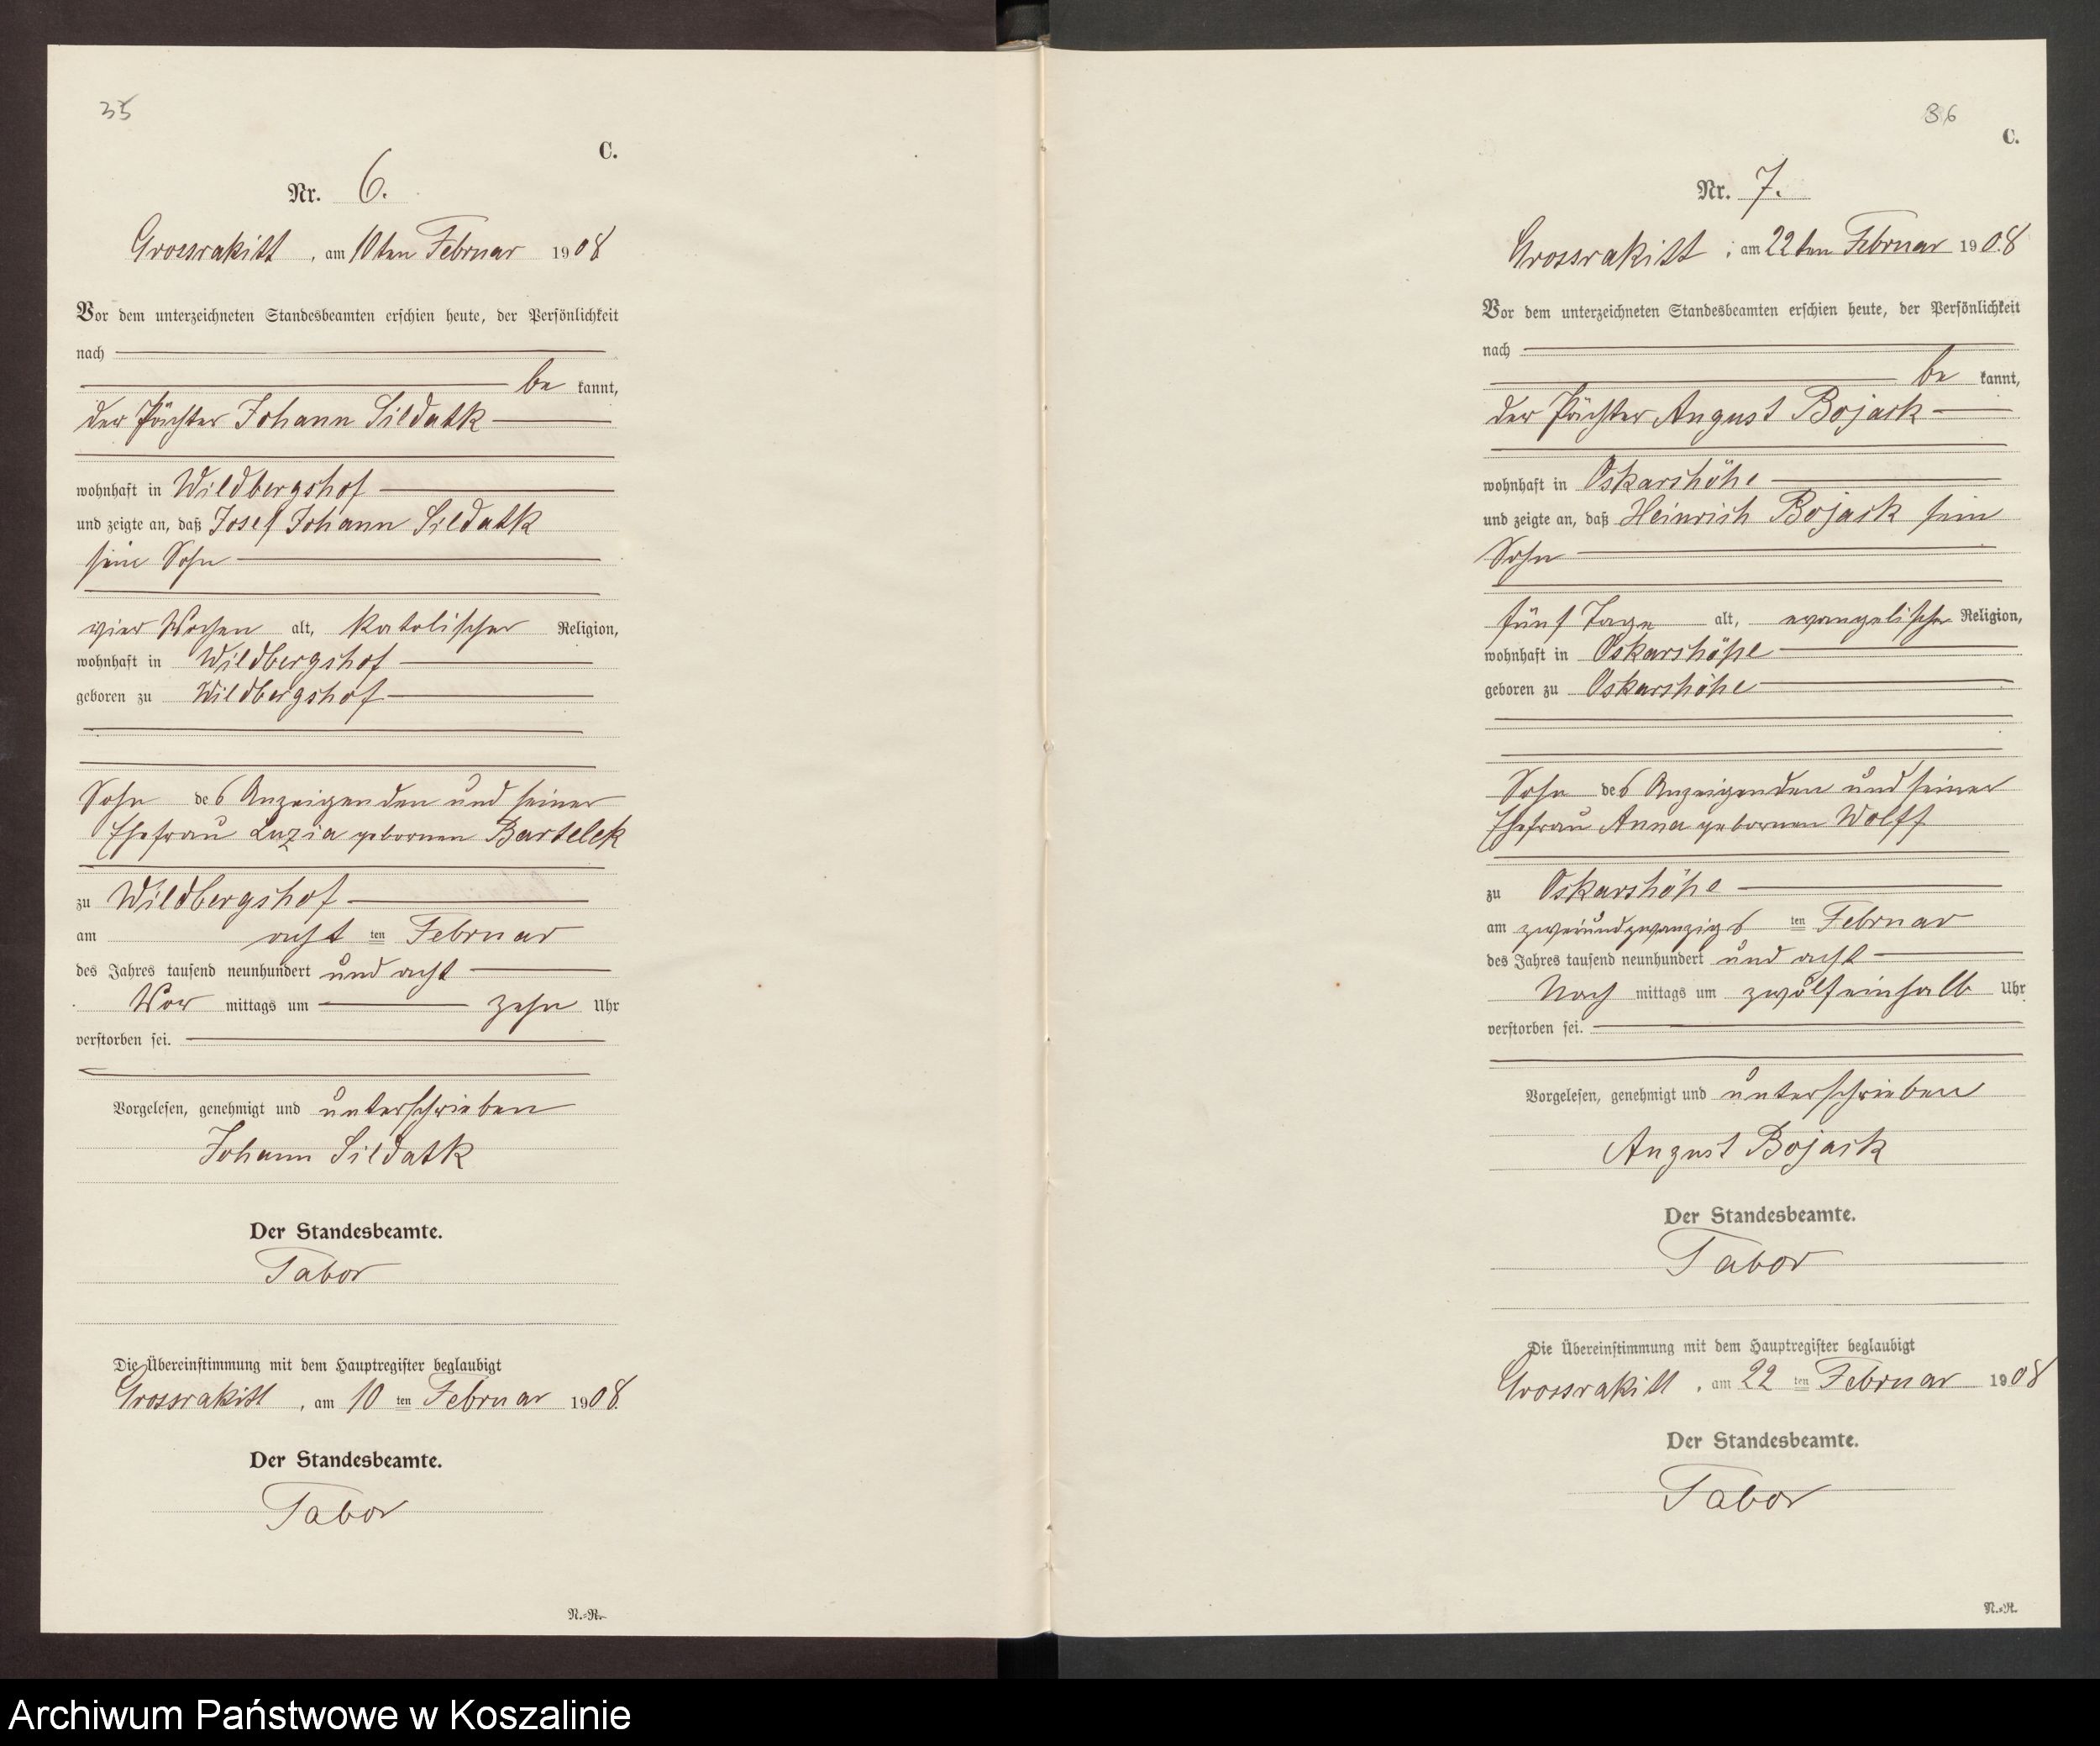 35
C.
Nr. 6.
Grossrakitt, am 10ten Februar 1908
Vor dem unterzeichneten Standesbeamten erschien heute, der Persönlichkeit
nach
be kannt,
der Pächter Johann Sildatk
wohnhaft in Wildbergshof
und zeigte an, daß Josef Johann Sildatk
sein Sohn
vier Wochen alt, katolischer Religion,
wohnhaft in Wildbergshof
geboren zu Wildbergshof
Sohn des Anzeigenden und seiner
Ehefrau Luzia gebornen Bartelek
zu Wildbergshof
am acht ten Februar
des Jahres tausend neunhundert und acht
Vor mittags um zehn Uhr
verstorben sei.
Vorgelesen, genehmigt und unterschrieben
Johann Sildatk
Der Standesbeamte.
Tabor
Die Übereinstimmung mit dem Hauptregister beglaubigt
Grossrakitt, am 10 ten Februar 1908.
Der Standesbeamte.
Tabor
N.=R.
36
C.
Nr. 7.
Grossrakitt, am 22ten Februar 1908
Vor dem unterzeichneten Standesbeamten erschien heute, der Persönlichkeit
nach
be kannt,
der Pächter August Bojack
wohnhaft in Oskarshöhe
und zeigte an, daß Heinrich Bojack sein
Sohn
fünf Tage alt, evangelischer Religion,
wohnhaft in Oskarshöhe
geboren zu Oskarshöhe
Sohn des Anzeigenden und seiner
Ehefrau Anna gebornen Wolff
zu Oskarshöhe
am zweiundzwanzigs ten Februar
des Jahres tausend neunhundert und acht
Nach mittags um zwölfeinhalb Uhr
verstorben sei.
Vorgelesen, genehmigt und unterschrieben
August Bojack
Der Standesbeamte.
Tabor
Die Übereinstimmung mit dem Hauptregister beglaubigt
Grossrakitt, am 22 ten Februar 1908
Der Standesbeamte.
Tabor
N.=R.
Archiwum Państwowe w Koszalinie